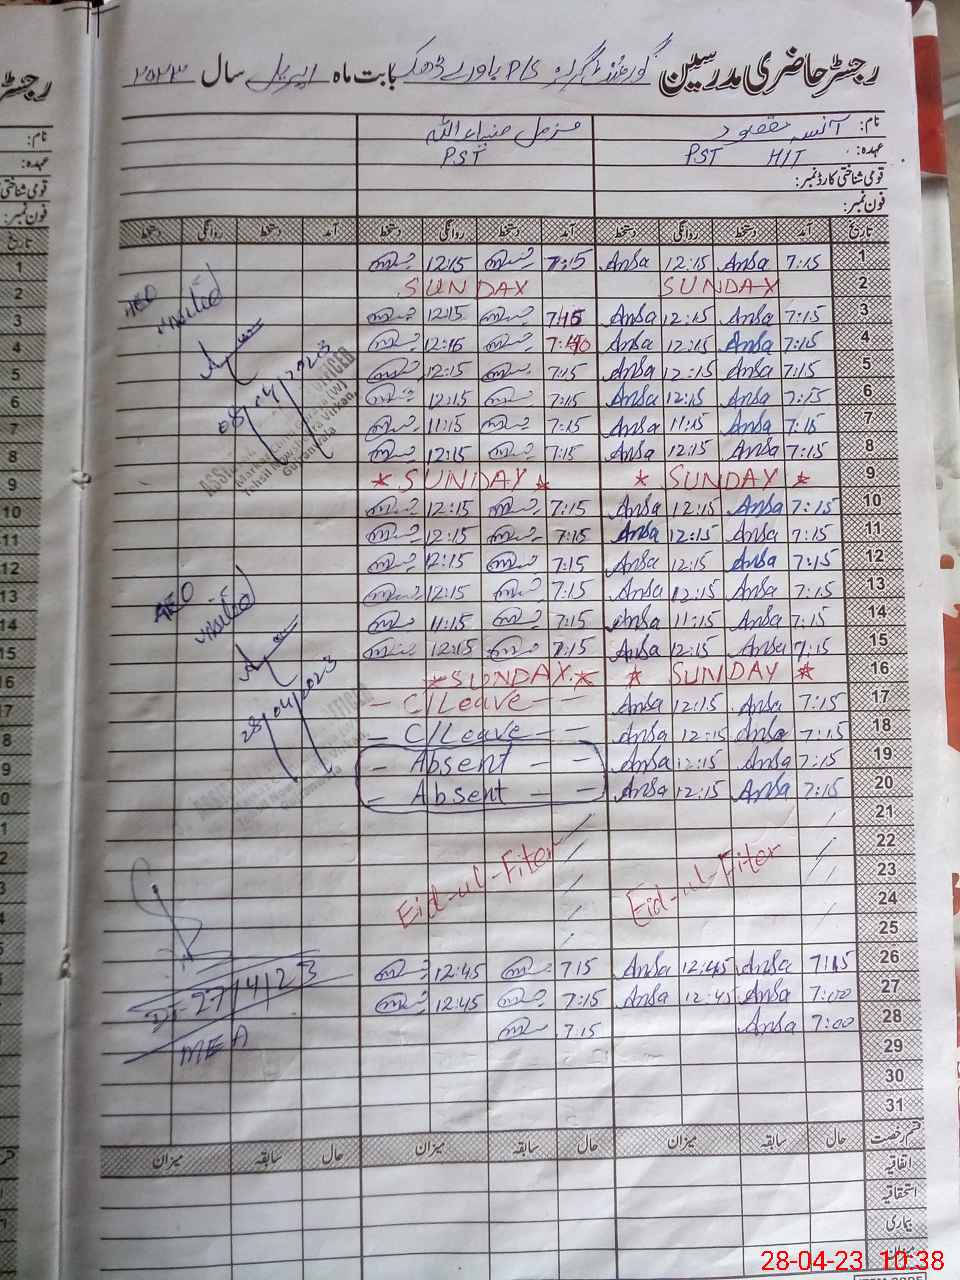 رجسٹر حاضری مدرسین گورنمنٹ P/S بابت ماہ اپریل سال ۲۰۲۳
نام: آنسہ مقصود مزمل ضیاء اللہ
عہدہ: PST H/T PST
قومی شناختی کارڈ نمبر:
فون نمبر:
تاریخ آمد دستخط روانگی دستخط آمد دستخط روانگی دستخط آمد دستخط روانگی دستخط
1 7:15 Ansa 12:15 Ansa 7:15 12:15
2 SUNDAY SUNDAY
3 7:15 Ansa 12:15 Ansa 7:15 12:15
4 7:15 Ansa 12:15 Ansa 12:15
5 7:15 Ansa 12:15 Ansa 7:15 12:15
6 7:15 Ansa 12:15 Ansa 7:15 12:15
7 7:15 Ansa 11:15 Ansa 7:15 11:15
8 7:15 Ansa 12:15 Ansa 7:15 12:15
9 * SUNDAY * * SUNDAY *
10 7:15 Ansa 12:15 Ansa 7:15 12:15
11 7:15 Ansa 12:15 Ansa 7:15 12:15
12 7:15 Ansa 12:15 Ansa 7:15 12:15
13 7:15 Ansa 12:15 Ansa 7:15 12:15
14 7:15 Ansa 11:15 Ansa 7:15 11:15
15 7:15 Ansa 12:15 Ansa 7:15 12:15
16 * SUNDAY * * SUNDAY *
17 7:15 Ansa 12:15 Ansa - C/Leave - -
18 7:15 Ansa 12:15 Ansa - C/Leave - -
19 7:15 Ansa 12:15 Ansa - Absent - -
20 7:15 Ansa 12:15 Ansa - Absent - -
21
22
23 Eid-ul-Fiter Eid-ul-Fiter
24
25
26 7:15 Ansa 12:45 Ansa 7:15 12:45
27 7:00 Ansa 12:45 Ansa 7:15 12:45
28 7:00 Ansa 7:15
29
30
31
AEO
visited
08/04/2023
AEO
visited
28/04/2023
Dt-27/4/23
MEA
قسم رخصت حال سابقہ میزان حال سابقہ میزان حال سابقہ میزان
اتفاقیہ
استحقاقیہ
بیماری
میزان
28-04-23 10:38